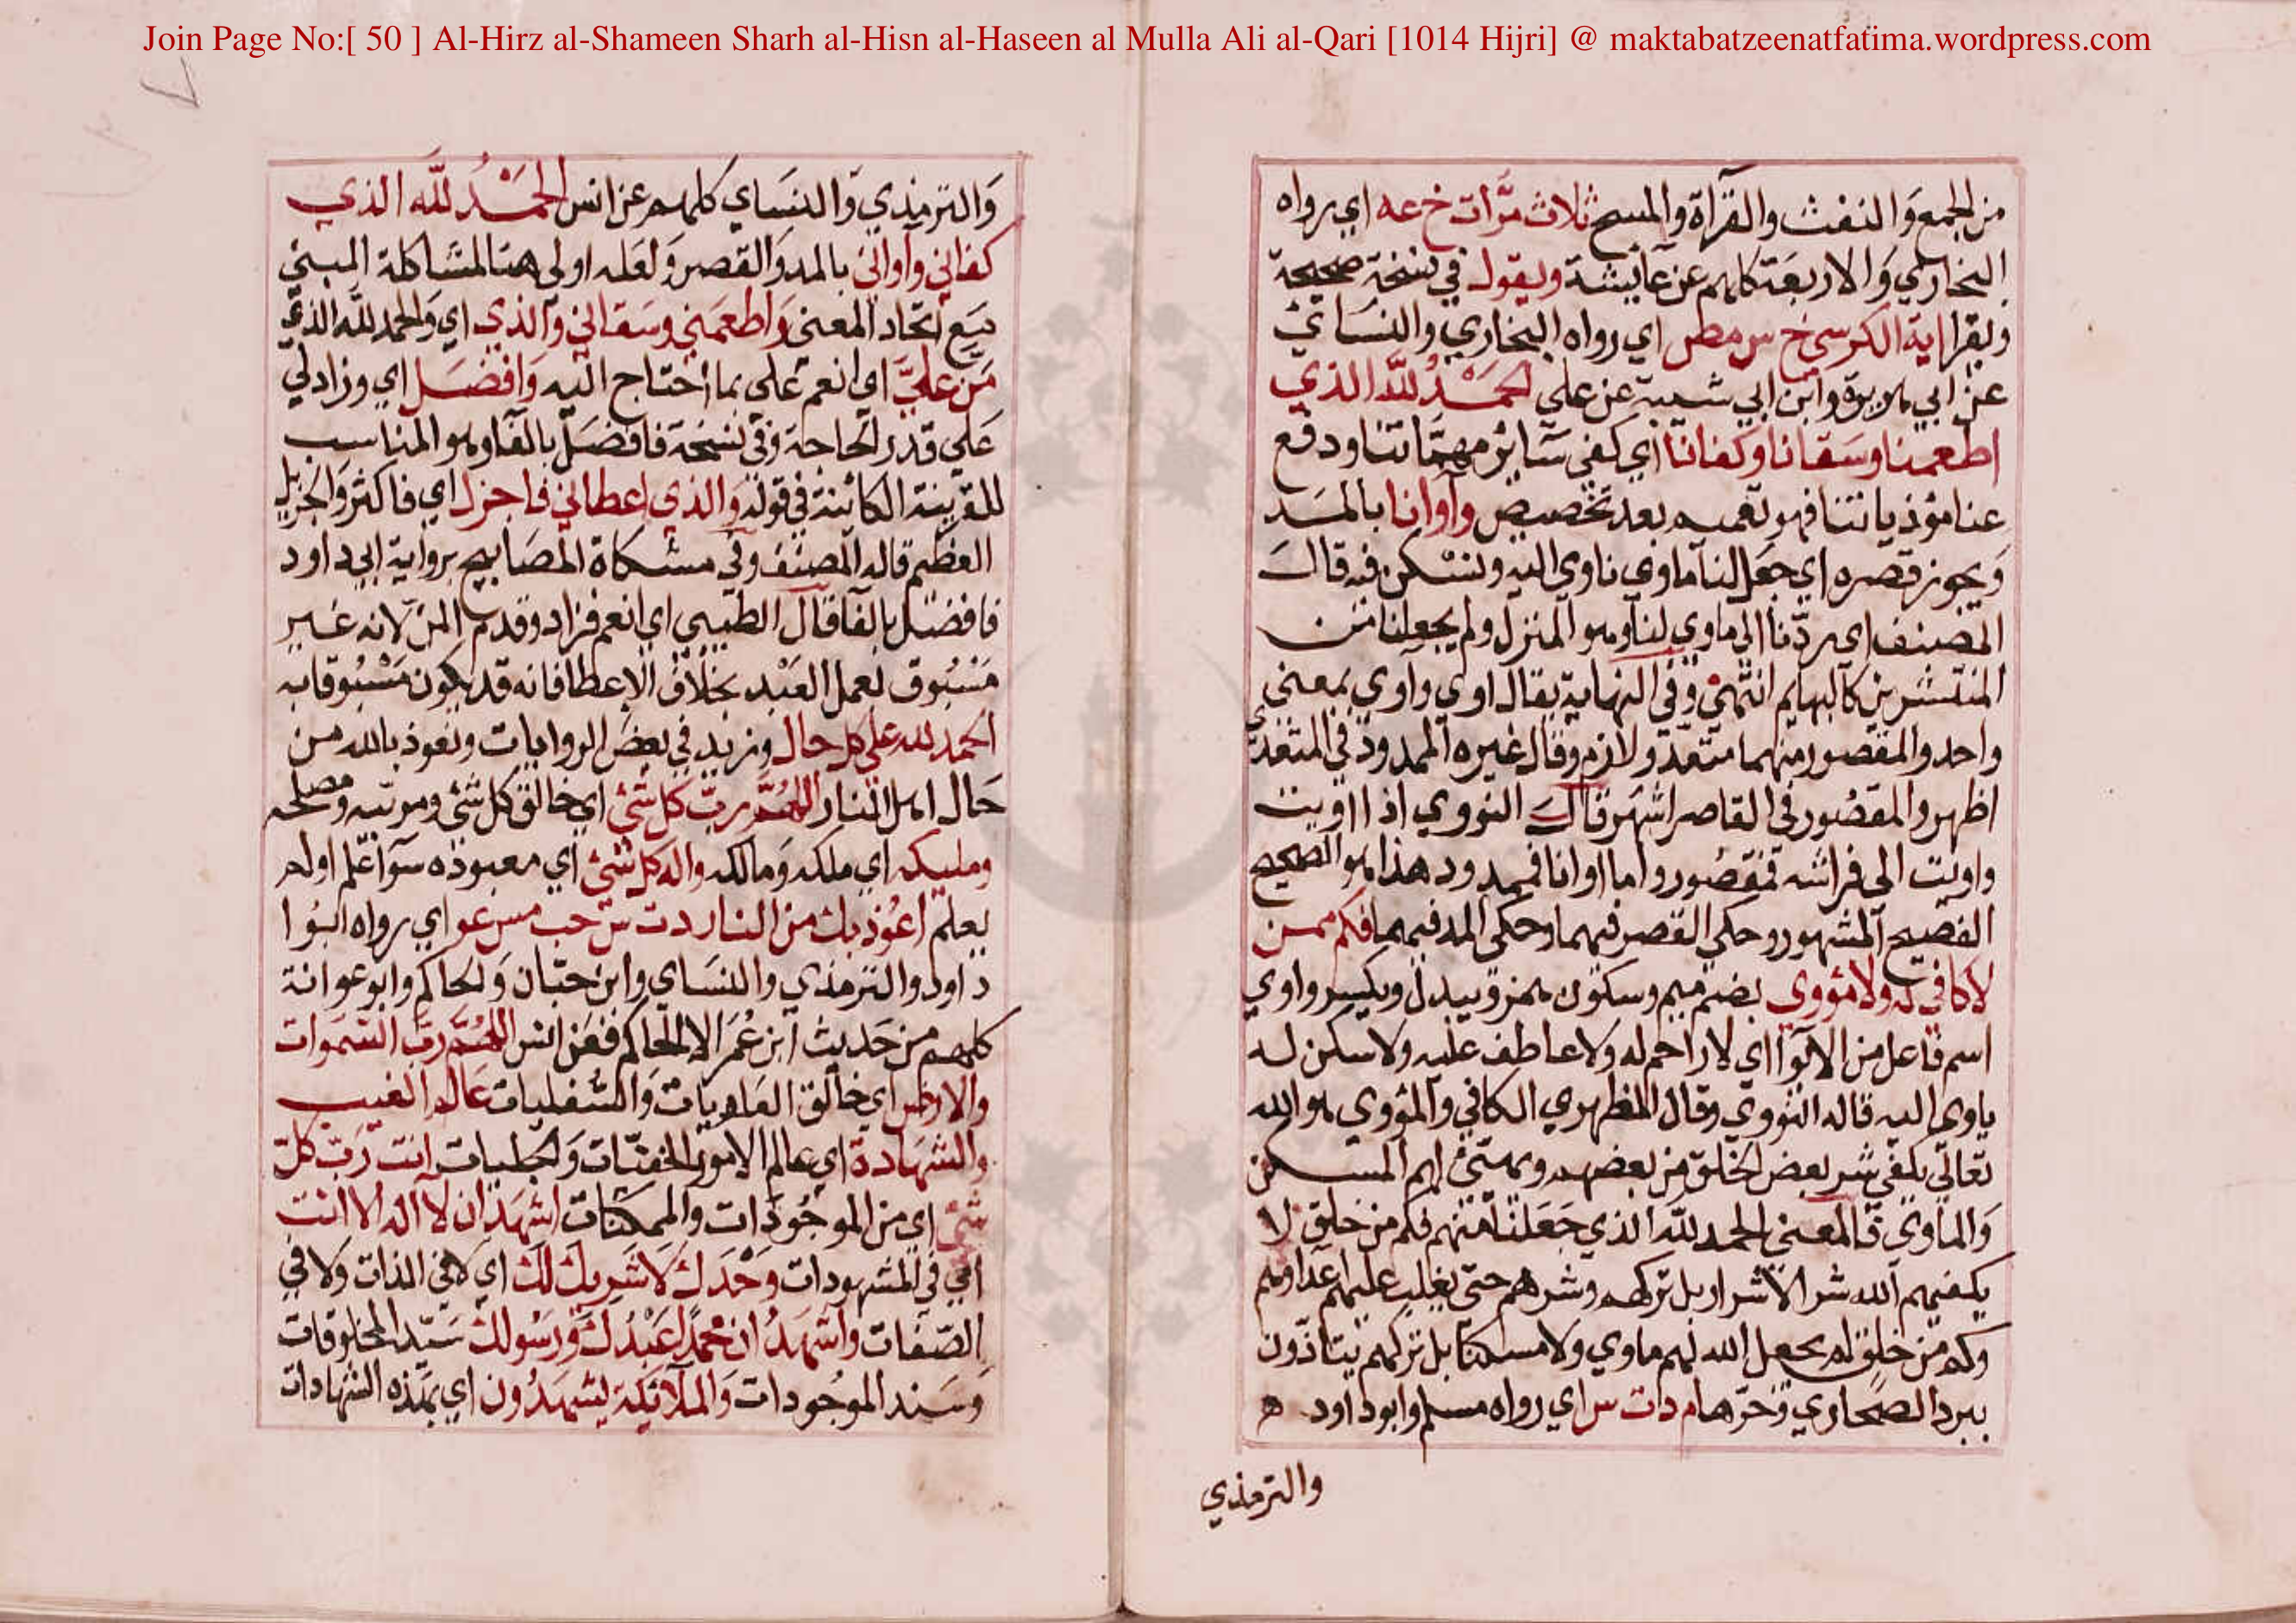 Join Page No:[ 50 ] Al-Hirz al-Shameen Sharh al-Hisn al-Haseen al Mulla Ali al-Qari [1014 Hijri] @ maktabatzeenatfatima.wordpress.com
من الجمع والنفث والقرآة والمسح ثلاث مرات خ عه اي رواه
البخاري والاربعة كلهم عن عايشة ويقول في نسخة صحيحة
ويقرا اية الكرسي خ س مص اي رواه البخاري والنساي
عن ابي هريرة وابن ابي شيبة عن علي الحمد لله الذي
اطعمنا وسقانا وكفانا اي كفي ساير مهماتنا ودفع
عنا مؤذياتنا فهو تعميم بعد تخصيص وآوانا بالمد
ويجوز قصره اي جعل لنا ماوي ناوي اليه ونسكن فيه قال
المصنف اي ردنا الي ماوي لنا وهو المنزل ولم يجعلنا من
المنتشرين كالبهايم انتهي وفي النهاية يقال اوي وآوي بمعني
واحد والمقصور منهما متعد ولازم وقال غيره الممدود في المتعدي
اظهر والمقصور في القاصر اشهر قال النووي اذا اويت
واويت الي فراشه فمقصور واما اوانا فممدود هذا هو الصحيح
الفصيح المشهور وحكي القصر فيهما وحكي المد فيهما فكم ممن
لا كافي له ولا مؤوي بضم ميم وسكون همز ويبدل ويكسر واوي
اسم فاعل من الايوا اي لا راحم له ولا عاطف عليه ولا سكن له
ياوي اليه قاله النووي وقال المظهري الكافي والمؤوي هو الله
تعالي يكفي شر بعض الخلق من بعضهم ويهيئ لهم المسكن
والماوي فالمعني الحمد لله الذي جعلنا منهم فكم من خلق لا
يكفيهم الله شر الاشرار بل تركهم وشرهم حتي يغلب عليهم اعداوهم
وكم من خلق لم يجعل الله لهم ماوي ولا مسكنا بل تركهم يتاذون
ببرد الصحاري وحرها م د ت س اي رواه مسلم وابو داود
والترمذي
والترمذي والنساي كلهم عن انس الحمد لله الذي
كفاني وآواني بالمد والقصر ولعله اولي هنا لمشاكلة المبني
مع اتحاد المعني واطعمني وسقاني والذي اي والحمد لله الذي
من علي اي انعم علي بما احتاج اليه وافضل اي وزاد لي
علي قدر الحاجة وفي نسخة فافضل بالفا وهو المناسب
للقرينة الكائنة في قوله والذي اعطاني فاجزل اي فاكثر والجزيل
العظيم قاله المصنف وفي مشكاة المصابيح برواية ابي داود
فافضل بالفا قال الطيبي اي انعم فزاد وقدم المن لانه غير
مسبوق لعمل العبد بخلاف الاعطا فانه قد يكون مسبوقا به
الحمد لله علي كل حال وزيد في بعض الروايات ونعوذ بالله من
حال اهل النار اللهم رب كل شئ اي خالق كل شئ ومربيه ومصلحه
ومليكه اي ملكه ومالكه واله كل شئ اي معبوده سوآ علم اولم
يعلم اعوذ بك من النار د ت س حب مس عو اي رواه ابوا
داود والترمذي والنساي وابن حبان والحاكم وابو عوانة
كلهم من حديث ابن عمر الا الحاكم فعن انس اللهم رب السموات
والارض اي خالق العلويات والسفليات عالم الغيب
والشهادة اي عالم الامور الخفيات والجليات انت رب كل
شئ اي من الموجودات والممكنات اشهد ان لا اله الا انت
اي في المشهودات وحدك لا شريك لك اي لا في الذات ولا في
الصفات واشهد ان محمدا عبدك ورسولك سيد المخلوقات
وسند الموجودات والملائكة يشهدون اي بهذه الشهادات